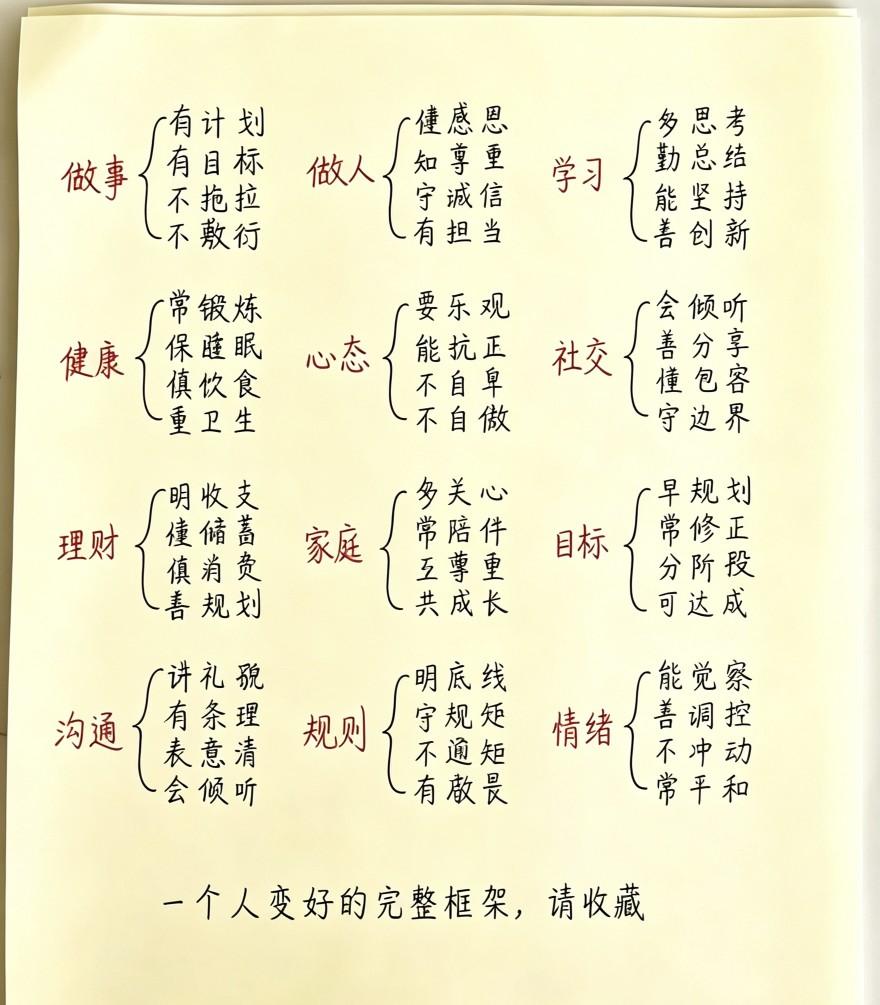 做事
有计划
有目标
不拖拉
不敷衍
做人
感恩
知尊重
守诚信
有担当
学习
多思考
勤总结
能坚持
善创新
健康
常锻炼
保睡眠
饮食
重卫生
心态
要乐观
能抗正
不自卑
不自傲
社交
会倾听
善分享
懂包容
守边界
理财
明收支
储蓄
消
善规划
家庭
多关心
常陪伴
互尊重
共成长
目标
早规划
常修正
分阶投
可达成
沟通
讲礼貌
有条理
表意清
会倾听
规则
明底线
守规矩
不通矩
有敬畏
情绪
能觉察
善调控
不冲动
常平和
一个人变好的完整框架，请收藏